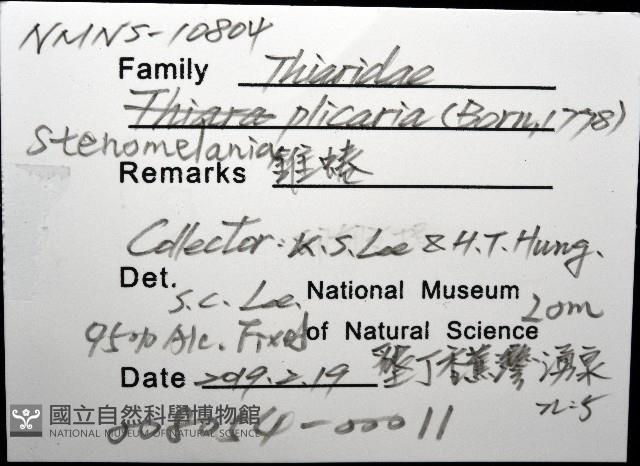 NMNS-10804
Family Thiaridae
Thiara plicaria (Born, 1778)
Stenomelania
Remarks 錐蜷
Collector: K.S. Lee & H.T. Hung.
Det.
S.C. Lee. National Museum 20m
95% Alc. Fixed of Natural Science
Date 2019.2.19 墾丁香蕉灣湧泉
n=5
國立自然科學博物館
NATIONAL MUSEUM OF NATURAL SCIENCE
-00011